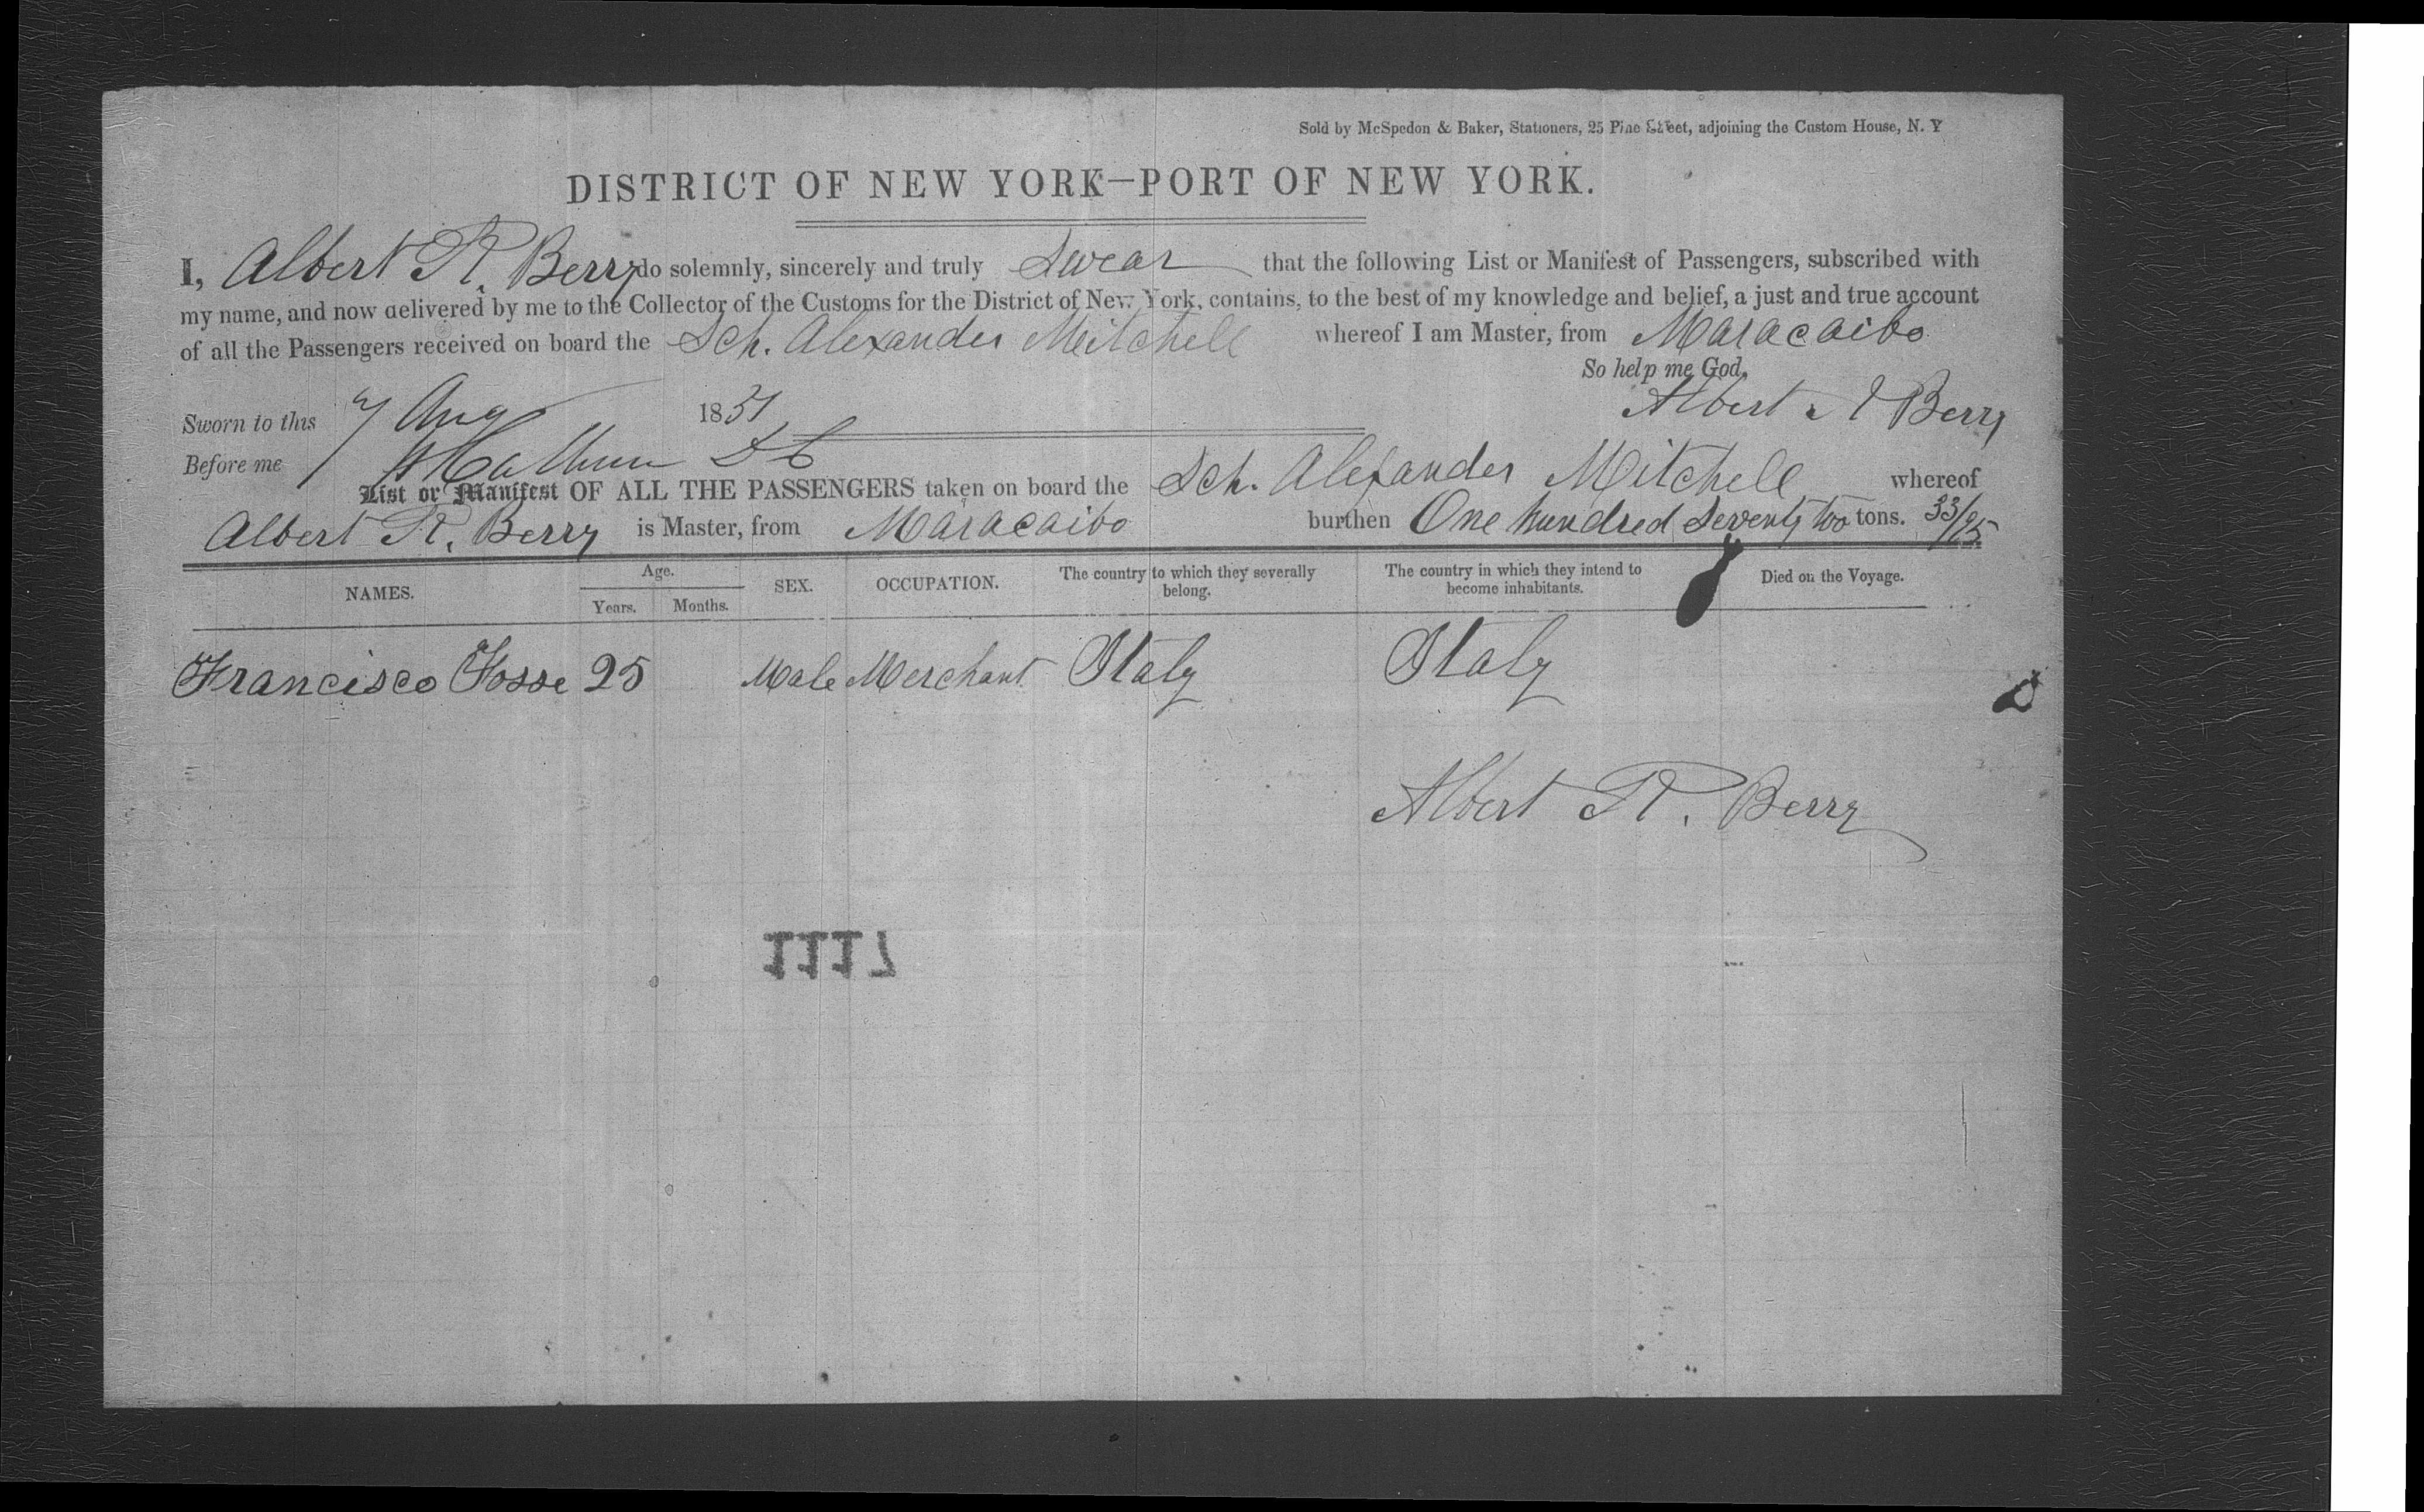 Sold by McSpedon & Baker, Stationers, 25 Pine Street, adjoining the Custom House, N. Y
DISTRICT OF NEW YORK—PORT OF NEW YORK.
I, Albert R. Berry do solemnly, sincerely and truly Swear that the following List or Manifest of Passengers, subscribed with
my name, and now delivered by me to the Collector of the Customs for the District of New York, contains, to the best of my knowledge and belief, a just and true account
of all the Passengers received on board the Sch. Alexander Mitchell whereof I am Master, from Maracaibo
So help me God.
Albert R Berry
Sworn to this 7 Aug 1851
Before me
List or Manifest OF ALL THE PASSENGERS taken on board the Sch. Alexander Mitchell whereof
Albert R. Berry is Master, from Maracaibo burthen One hundred Seventy two tons. 33/95
NAMES. Age. Years. Months. SEX. OCCUPATION. The country to which they severally belong. The country in which they intend to become inhabitants. Died on the Voyage.
Francisco Fosse 25 Male Merchant Italy Italy
Albert R. Berry
1117